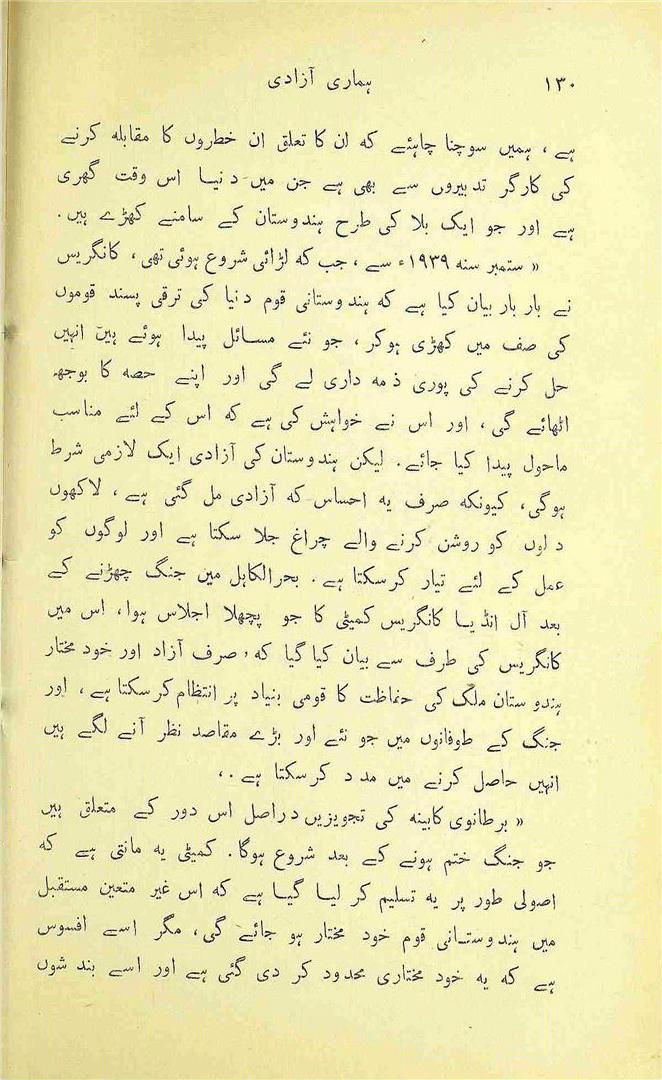 ۱۳۰ ہماری آزادی
ہے ، ہمیں سوچنا چاہئے کہ ان کا تعلق ان خطروں کا مقابلہ کرنے
کی کارگر تدبیروں سے بھی ہے جن میں دنیا اس وقت گھری
ہے اور جو ایک بلا کی طرح ہندوستان کے سامنے کھڑے ہیں.
« ستمبر سنہ ۱۹۳۹ء سے ، جب کہ لڑائی شروع ہوئی تھی ، کانگریس
نے بار بار بیان کیا ہے کہ ہندوستانی قوم دنیا کی ترقی پسند قوموں
کی صف میں کھڑی ہوکر ، جو نئے مسائل پیدا ہوئے ہیں انہیں
حل کرنے کی پوری ذمہ داری لے گی اور اپنے حصہ کا بوجھ
اٹھائے گی ، اور اس نے خواہش کی ہے کہ اس کے لئے مناسب
ماحول پیدا کیا جائے. لیکن ہندوستان کی آزادی ایک لازمی شرط
ہوگی ، کیونکہ صرف یہ احساس کہ آزادی مل گئی ہے ، لاکھوں
دلوں کو روشن کرنے والے چراغ جلا سکتا ہے اور لوگوں کو
عمل کے لئے تیار کرسکتا ہے. بحرالکاہل میں جنگ چھڑنے کے
بعد آل انڈیا کانگریس کمیٹی کا جو پچھلا اجلاس ہوا ، اس میں
کانگریس کی طرف سے بیان کیا گیا کہ ’ صرف آزاد اور خود مختار
ہندوستان ملک کی حفاظت کا قومی بنیاد پر انتظام کرسکتا ہے ، اور
جنگ کے طوفانوں میں جو نئے اور بڑے مقاصد نظر آنے لگے ہیں
انہیں حاصل کرنے میں مدد کرسکتا ہے. ،
« برطانوی کابینہ کی تجویزیں دراصل اس دور کے متعلق ہیں
جو جنگ ختم ہونے کے بعد شروع ہوگا. کمیٹی یہ مانتی ہے کہ
اصولی طور پر یہ تسلیم کر لیا گیا ہے کہ اس غیر متعین مستقبل
میں ہندوستانی قوم خود مختار ہو جائے گی ، مگر اسے افسوس
ہے کہ یہ خود مختاری محدود کر دی گئی ہے اور اسے بندشوں